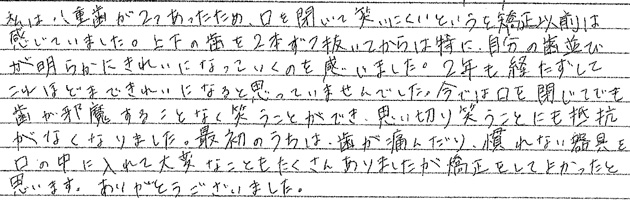 私は、八重歯が2つあったため、口を開いて笑いにくいというを矯正以前は
感じていました。上下の歯を2本ずつ抜いてからは特に、自分の歯並び
が明らかにきれいになっていくのを感いました。2年も経たずして
これほどまできれいになると思っていませんでした。今では口を閉じてでも
歯が邪魔することなく笑うことができ、思い切り笑うことにも抵抗
がなくなりました。最初のうちは、歯が痛んだり、慣れない器具を
口の中に入れて大変なこともたくさんありましたが矯正をしてよかったと
思います。ありがとうございました。